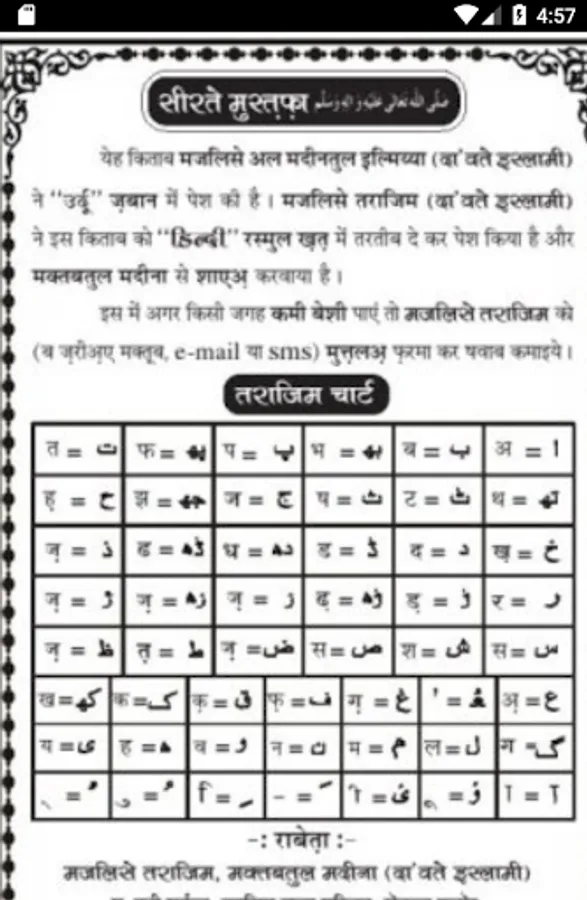 4:57
सीरते मुस्तफ़ा صَلَّی اللہُ تَعَالٰی عَلَیْہِ وَاٰلِہٖ وَسَلَّم
येह किताब मजलिसे अल मदीनतुल इल्मिय्या (दा'वते इस्लामी)
ने "उर्दू" ज़बान में पेश की है। मजलिसे तराजिम (दा'वते इस्लामी)
ने इस किताब को "हिन्दी" रस्मुल ख़त़ में तरतीब दे कर पेश किया है और
मक्तबतुल मदीना से शाएअ़ करवाया है।
इस में अगर किसी जगह कमी बेशी पाएं तो मजलिसे तराजिम को
(ब ज़रीअ़ए मक्तूब, e-mail या sms) मुत्त़लअ़ फ़रमा कर षवाब कमाइये।
तराजिम चार्ट
त = ت फ = پھ प = پ भ = بھ ब = ب अ = ا
ह़ = ح झ = جھ ज = ج ष = ث ट = ٹ थ = تھ
ज़ = ذ ढ = ڈھ ध = دھ ड = ڈ द = د ख़ = خ
ज़ = ژ ज़ = زھ ज़ = ز ढ़ = ڑھ ड़ = ڑ र = ر
ज़ = ظ त़ = ط ज़ = ض स = ص श = ش स = س
ख = کھ क = ک क़ = ق फ़ = ف ग़ = غ ' = ءُ अ़ = ع
य = ی ह = ہ व = و न = ن म = م ल = ل ग = گ
ा = آ
-: राबेत़ा :-
मजलिसे तराजिम, मक्तबतुल मदीना (दा'वते इस्लामी)